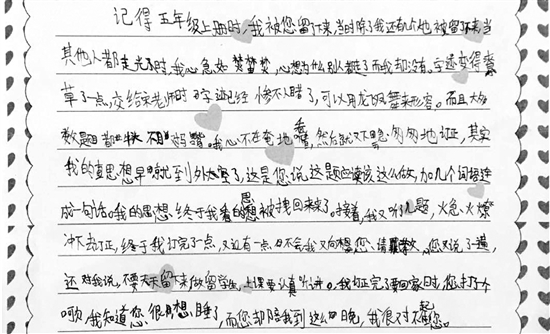 记得五年级上册时,我被您留下来,当时除了我还有几位被留下来,当
其他人都走光了时,我心急如焚,心想为什么别人都走了而我却没。字迹变得潦
草了一点,交给宋老师时字迹已经惨不人睹了,可以用龙飞凤舞来形容。而且大多
数题目都。我心不在焉地看,然后就又匆匆地订正,其实
我的思想早就到外太空了,这是您说,这题应该这么做,加几个词接连
成一句话。我的思想终于被拽回来了。接着,我又听了几题,火急火燎
冲下去订正,终于我订完了一点,又还有一点不会我又向您请教,您又说了一遍,
还对我说,不要天天留下来做留学生,上课要认真听讲。我订正完了要回家时,您打了个
呵欠,我知道您很想睡了,而您却陪我到这么晚,我很对不起您。